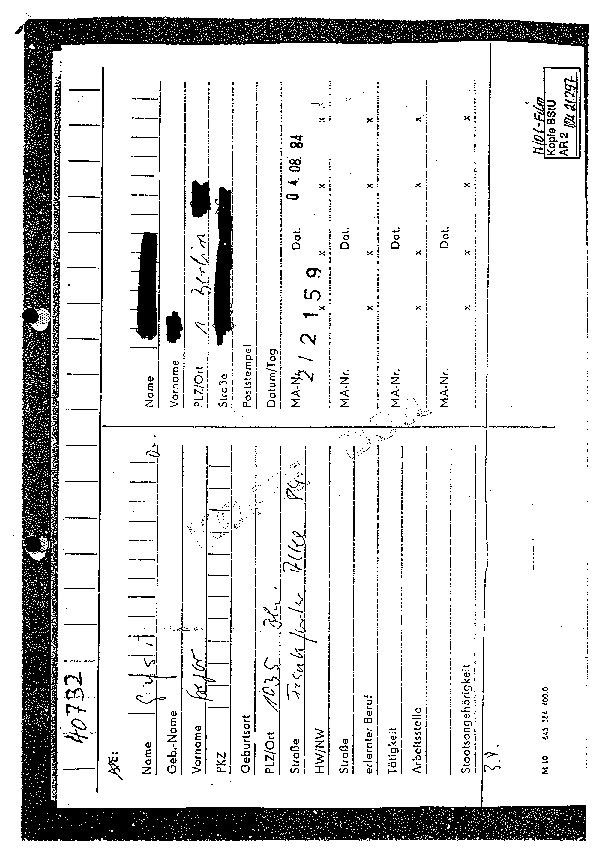 40732
A/E:
Name
Geb.-Name
Vorname
PKZ
Geburtsort
PLZ/Ort 1035 Bln.
Straße Frankfurter Allee
HW/NW
Straße
erlernter Beruf
Tätigkeit
Arbeitsstelle
Staatsangehörigkeit
M 10
Name
Vorname
PLZ/Ort 1 Berlin
Straße
Poststempel
Datum/Tag
MA-Nr. 212159 Dat. 04.08.84
x x x x
MA-Nr. Dat.
x x x x
MA-Nr. Dat.
x x x x
MA-Nr. Dat.
x x x x
Kopie BStU
AR 2